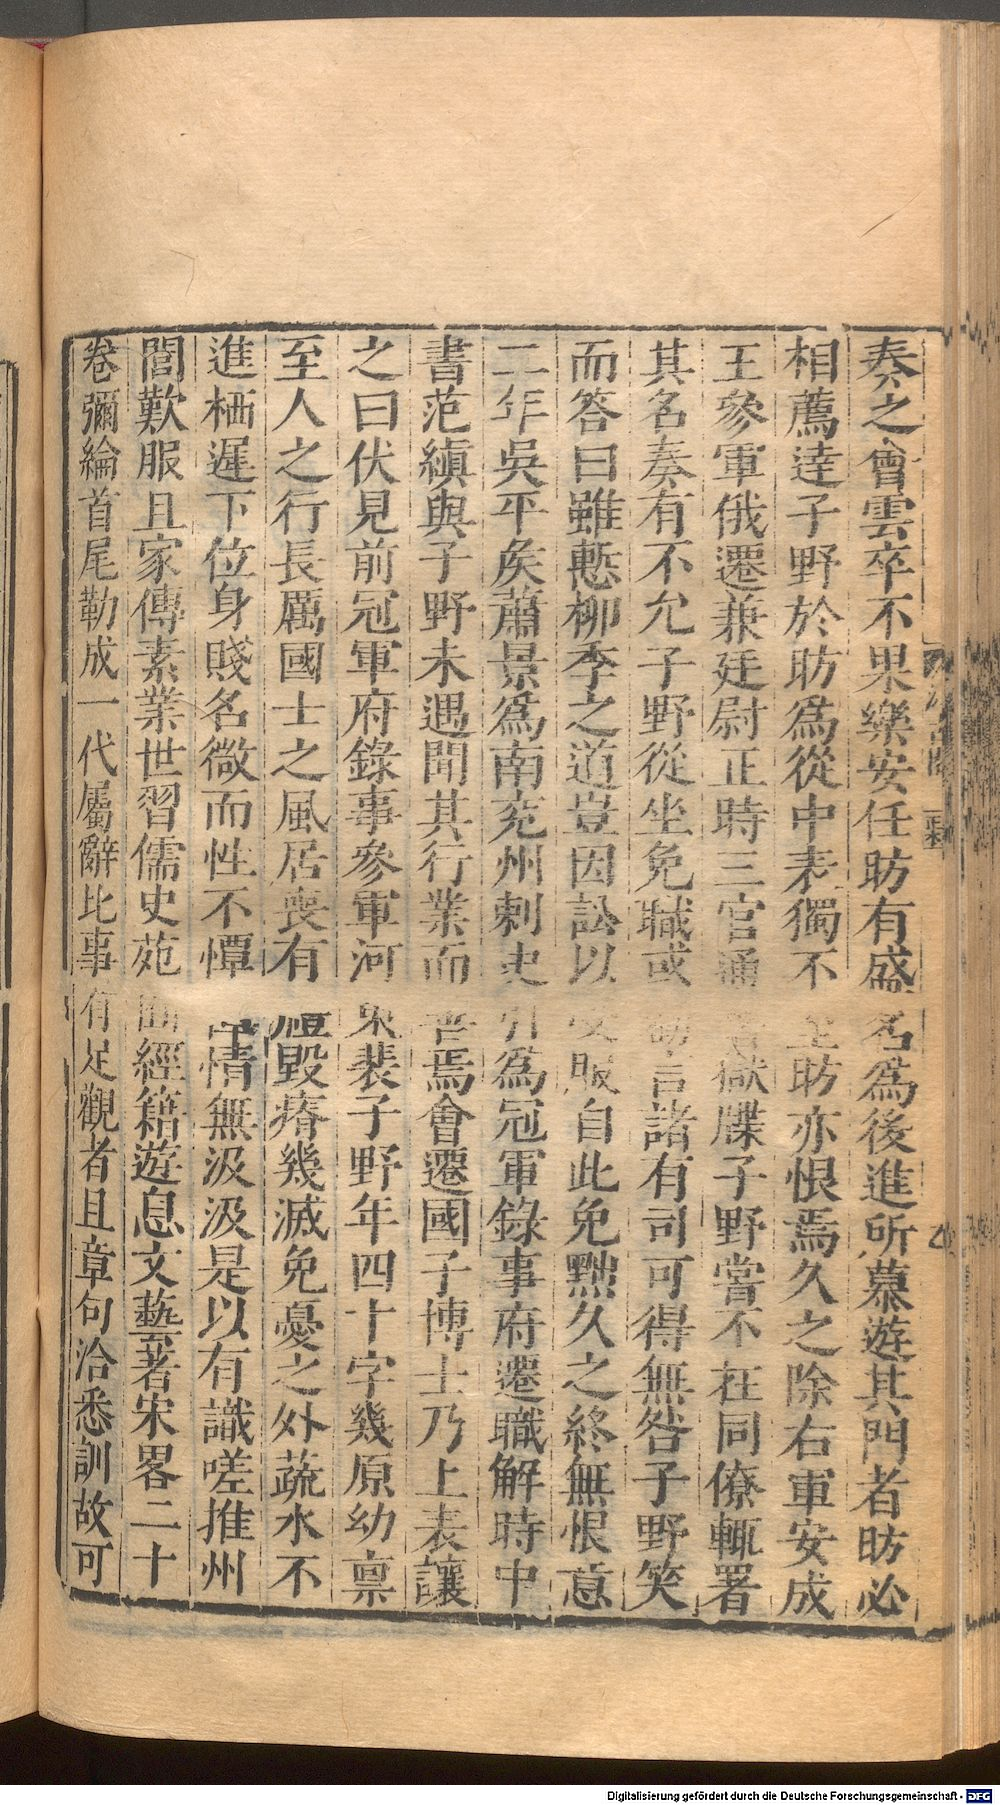 奏之會雲卒不果樂安任昉有盛名爲後進所慕遊其門者昉必
相薦達子野於昉爲從中表獨不至昉亦恨焉久之除右軍安成
王參軍俄遷兼廷尉正時三官通署獄牒子野嘗不在同僚輒署
其名奏有不允子野從坐免職或勸言諸有司可得無咎子野笑
而答曰雖慙柳季之道豈因訟以受服自此免黜久之終無恨意
二年吳平矦蕭景爲南兖州刺史引爲冠軍錄事府遷職解時中
書范縝與子野未遇聞其行業而善焉會遷國子博士乃上表讓
之曰伏見前冠軍府錄事參軍河東裴子野年四十字幾原幼禀
至人之行長厲國士之風居喪有禮毀瘠幾滅免憂之外蔬水不
進栖遲下位身賤名微而性不憛憛情無汲汲是以有識嗟推州
閭歎服且家傳素業世習儒史苑囿經籍遊息文藝著宋畧二十
卷彌綸首尾勒成一代屬辭比事有足觀者且章句洽悉訓故可
Digitalisierung gefördert durch die Deutsche Forschungsgemeinschaft - DFG